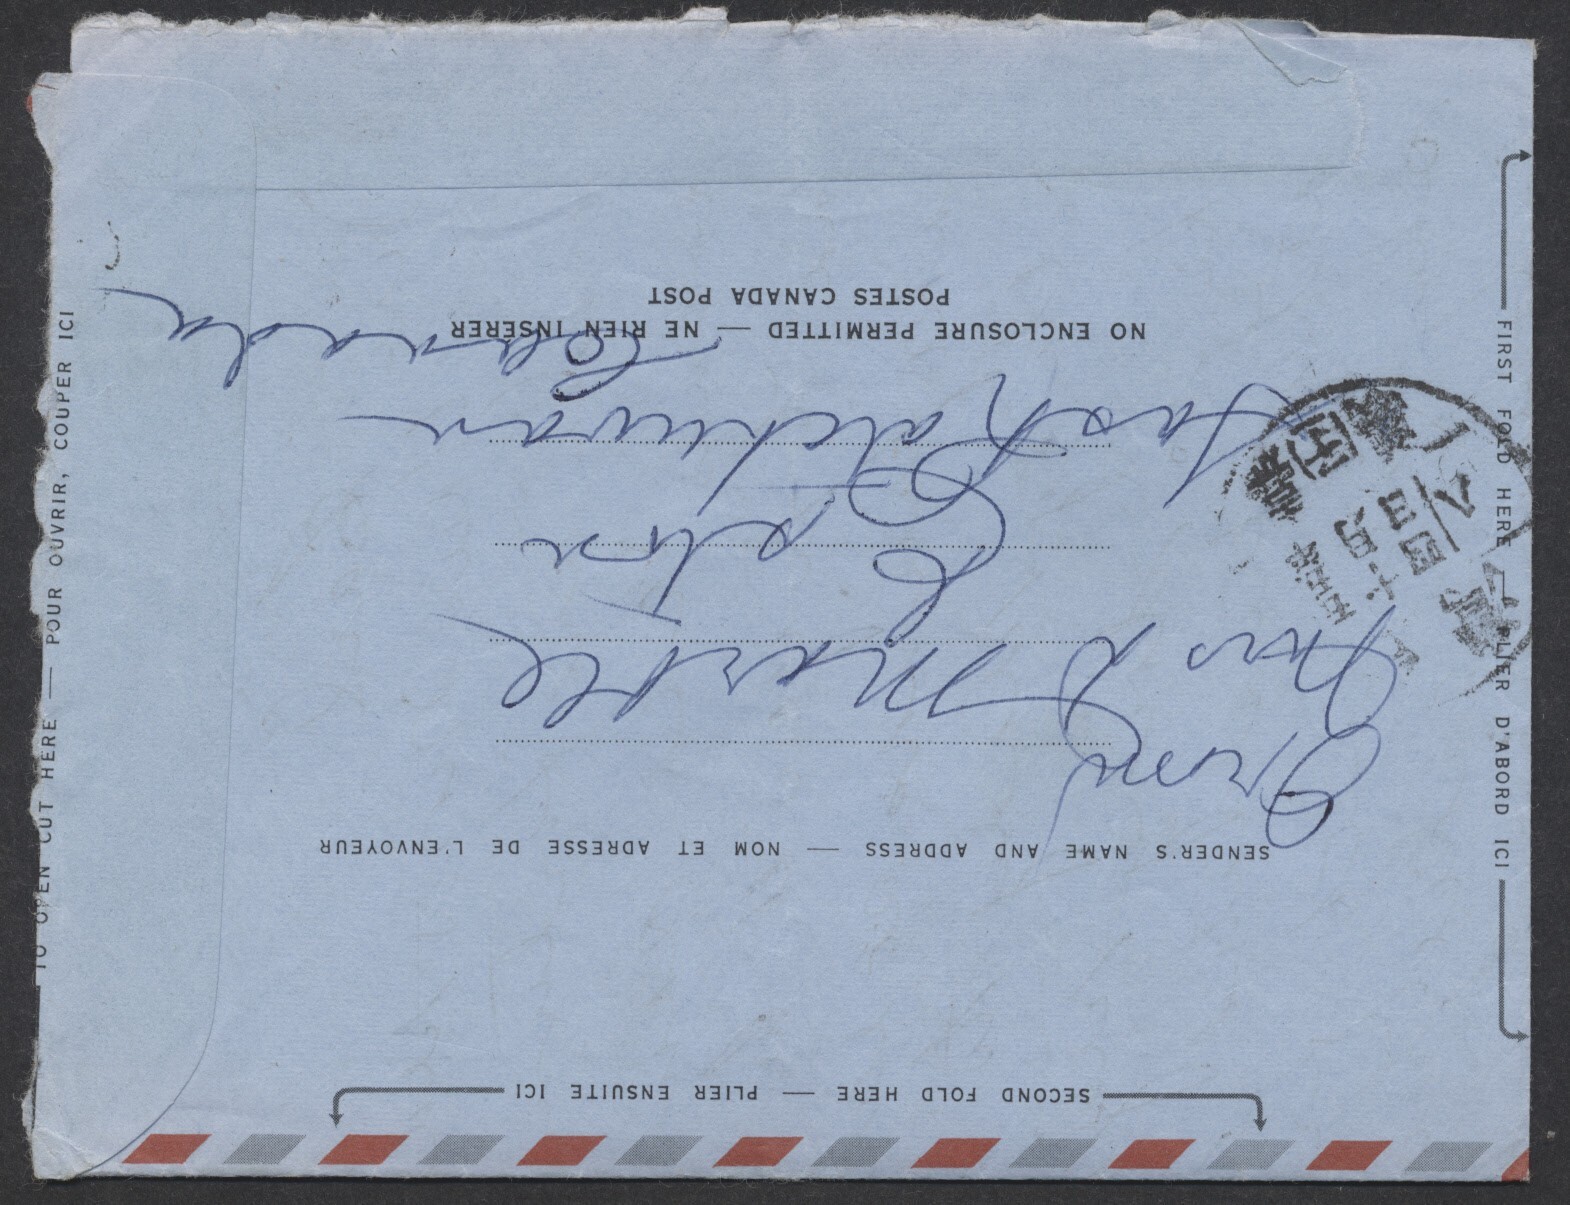 SECOND FOLD HERE — PLIER ENSUITE ICI
SENDER'S NAME AND ADDRESS — NOM ET ADRESSE DE L'ENVOYEUR
From
Mrs D Markle
Saskatchewan
Canada
NO ENCLOSURE PERMITTED — NE RIEN INSERER
POSTES CANADA POST
FIRST FOLD HERE — PLIER D'ABORD ICI
TO OPEN CUT HERE — POUR OUVRIR, COUPER ICI